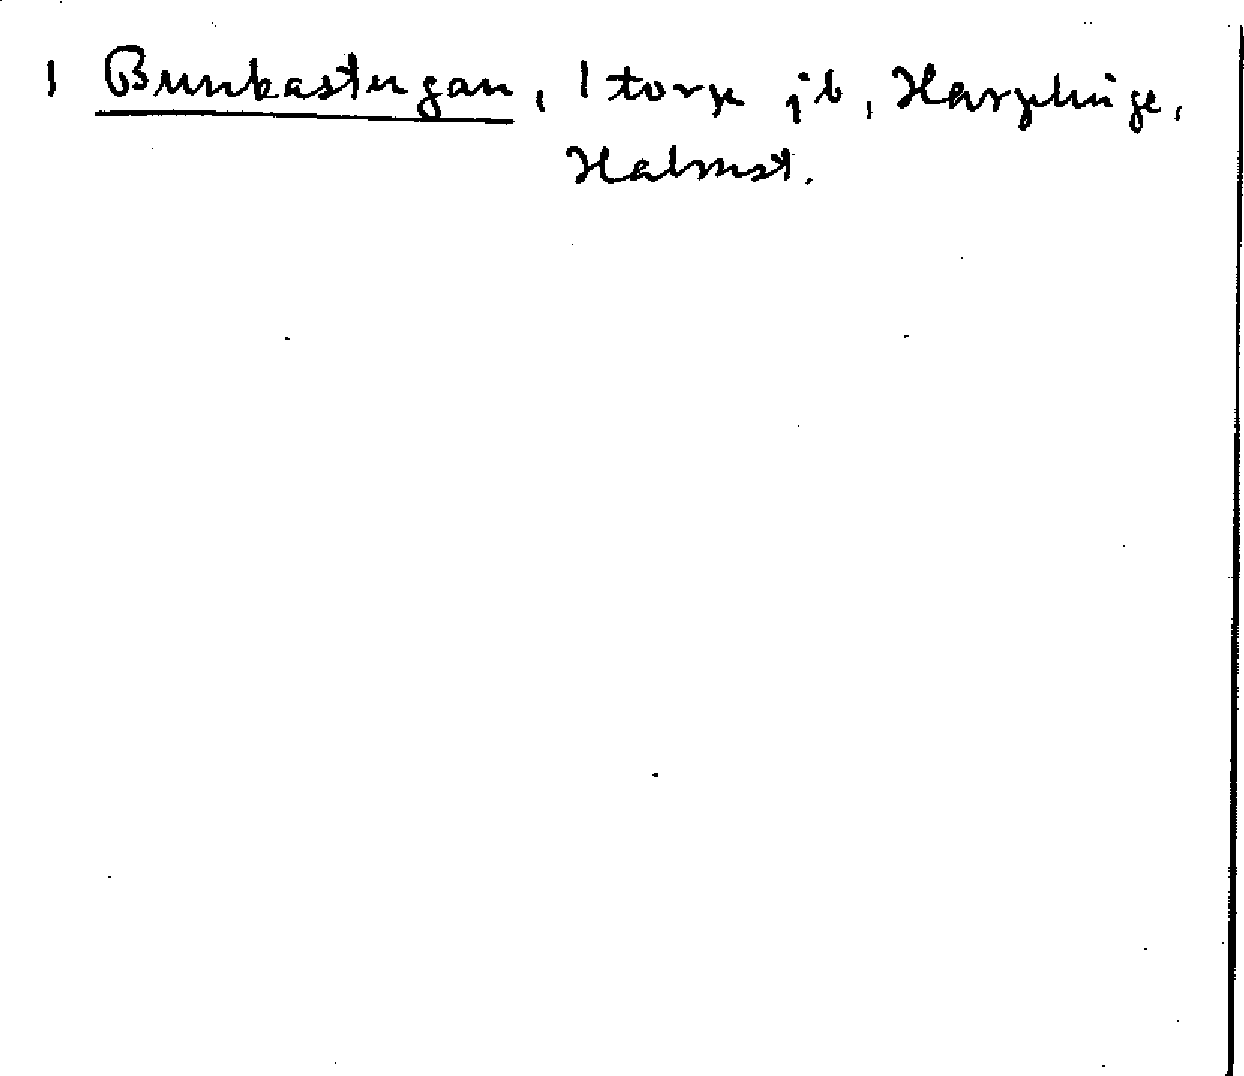 1 Bunkastugan, 1 torp jb, Harplinge,
Halmst.